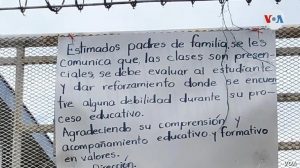 VOA
Estimados padres de familia, se les
comunica que, las clases son presen-
ciales, se debe evaluar al estudiante
y dar reforzamiento donde se encuen
tre alguna debilidad durante su pro-
ceso educativo.
Agradeciendo su comprensión y
acompañamiento educativo y formativo
en valores.
Dirección.